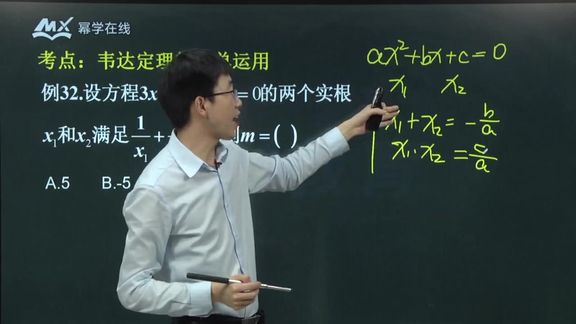 MX 幂学在线
考点：韦达定理 运用
例32.设方程3x =0的两个实根
x₁和x₂满足 1/x₁ + m=( )
A.5 B.-5
ax²+bx+c=0
x₁ x₂
x₁+x₂=-b/a
x₁·x₂=c/a